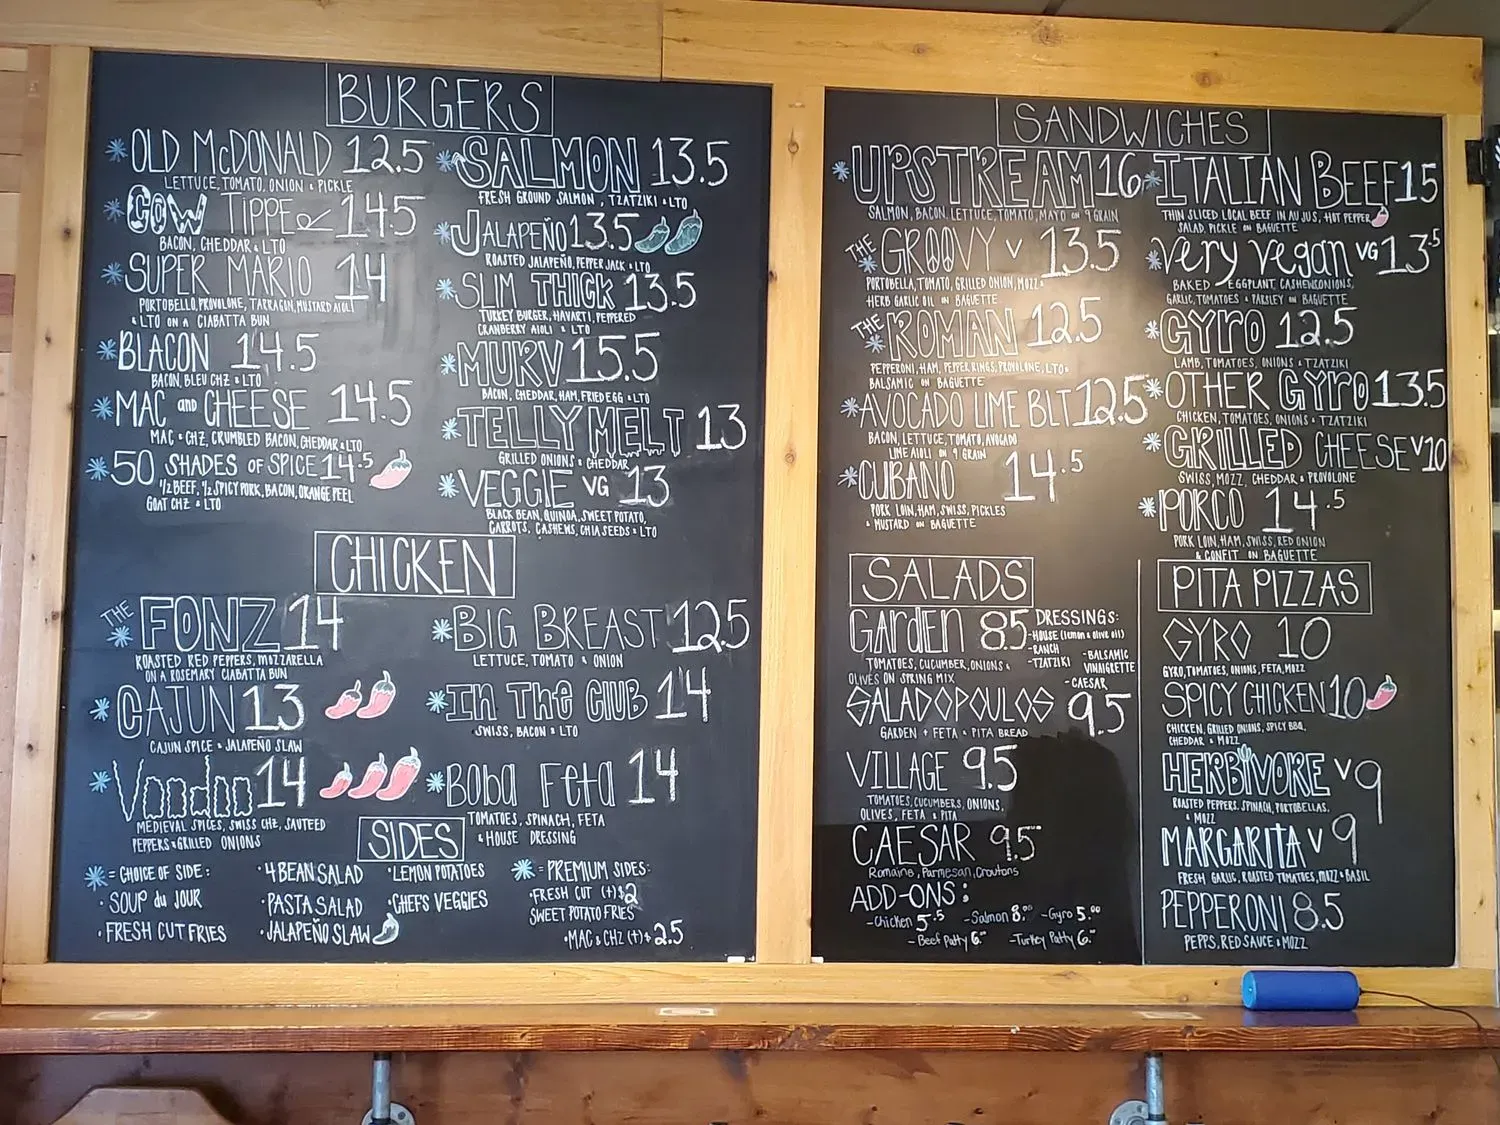 BURGERS
OLD McDONALD 12.5
LETTUCE, TOMATO, ONION & PICKLE
COW TIPPER 14.5
BACON, CHEDDAR & LTO
SUPER MARIO 14
PORTOBELLO, PROVOLONE, TARRAGIN, MUSTARD AIOLI
& LTO ON A CIABATTA BUN
BLACON 14.5
BACON, BLEU CHZ & LTO
MAC and CHEESE 14.5
MAC & CHZ, CRUMBLED BACON, CHEDDAR & LTO
50 SHADES OF SPICE 14.5
1/2 BEEF, 1/2 SPICY PORK, BACON, ORANGE PEEL
GOAT CHZ & LTO
SALMON 13.5
FRESH GROUND SALMON, TZATZIKI & LTO
JALAPEÑO 13.5
ROASTED JALAPEÑO, PEPPER JACK & LTO
SLIM THICK 13.5
TURKEY BURGER, HAVARTI, PEPPERED
CRANBERRY AIOLI & LTO
MURV 15.5
BACON, CHEDDAR, HAM, FRIED EGG & LTO
TELLY MELT 13
GRILLED ONIONS & CHEDDAR
VEGGIE VG 13
BLACK BEAN, QUINOA, SWEET POTATO,
CARROTS, CASHEWS, CHIA SEEDS & LTO
CHICKEN
THE FONZ 14
ROASTED RED PEPPERS, MOZZARELLA
ON A ROSEMARY CIABATTA BUN
CAJUN 13
CAJUN SPICE & JALAPEÑO SLAW
Voodoo 14
MEDIEVAL SPICES, SWISS CHZ, SAUTEED
PEPPERS & GRILLED ONIONS
BIG BREAST 12.5
LETTUCE, TOMATO & ONION
In The CLUB 14
SWISS, BACON & LTO
Boba Feta 14
TOMATOES, SPINACH, FETA
& HOUSE DRESSING
SIDES
= CHOICE OF SIDE:
· SOUP du JOUR
· FRESH CUT FRIES
· 4 BEAN SALAD
· PASTA SALAD
· JALAPEÑO SLAW
· LEMON POTATOES
· CHEFS VEGGIES
= PREMIUM SIDES:
· FRESH CUT (+)$2
SWEET POTATO FRIES
· MAC & CHZ (+)$2.5
SANDWICHES
UPSTREAM 16
SALMON, BACON, LETTUCE, TOMATO, MAYO ON 9 GRAIN
THE GROOVY V 13.5
PORTOBELLA, TOMATO, GRILLED ONION, MOZZ &
HERB GARLIC OIL ON BAGUETTE
THE ROMAN 12.5
PEPPERONI, HAM, PEPPER RINGS, PROVOLONE, LTO &
BALSAMIC ON BAGUETTE
AVOCADO LIME BLT 12.5
BACON, LETTUCE, TOMATO, AVOCADO
LIME AIOLI ON 9 GRAIN
CUBANO 14.5
PORK LOIN, HAM, SWISS, PICKLES
& MUSTARD ON BAGUETTE
ITALIAN BEEF 15
THIN SLICED LOCAL BEEF IN AU JUS, HOT PEPPER
SALAD, PICKLE ON BAGUETTE
Very Vegan VG 13.5
BAKED EGGPLANT, CASHEW ONIONS,
GARLIC, TOMATOES & PARSLEY ON BAGUETTE
GYRO 12.5
LAMB, TOMATOES, ONIONS & TZATZIKI
OTHER GYRO 13.5
CHICKEN, TOMATOES, ONIONS & TZATZIKI
GRILLED CHEESE V 10
SWISS, MOZZ, CHEDDAR & PROVOLONE
PORCO 14.5
PORK LOIN, HAM, SWISS, RED ONION
& CONFIT ON BAGUETTE
SALADS
GARDEN 8.5
TOMATOES, CUCUMBER, ONIONS &
OLIVES ON SPRING MIX
DRESSINGS:
-HOUSE (lemon & olive oil)
-RANCH
-TZATZIKI
-BALSAMIC
VINAIGRETTE
-CAESAR
SALADOPOULOS 9.5
GARDEN + FETA & PITA BREAD
VILLAGE 9.5
TOMATOES, CUCUMBERS, ONIONS,
OLIVES, FETA & PITA
CAESAR 9.5
Romaine, Parmesan, Croutons
ADD-ONS:
-Chicken 5.5 -Salmon 8.00 -Gyro 5.00
-Beef Patty 6.00 -Turkey Patty 6.00
PITA PIZZAS
GYRO 10
GYRO, TOMATOES, ONIONS, FETA, MOZZ
SPICY CHICKEN 10
CHICKEN, GRILLED ONIONS, SPICY BBQ,
CHEDDAR & MOZZ
HERBIVORE V 9
ROASTED PEPPERS, SPINACH, PORTOBELLAS,
& MOZZ
MARGARITA V 9
FRESH GARLIC, ROASTED TOMATOES, MOZZ & BASIL
PEPPERONI 8.5
PEPPS, RED SAUCE & MOZZ